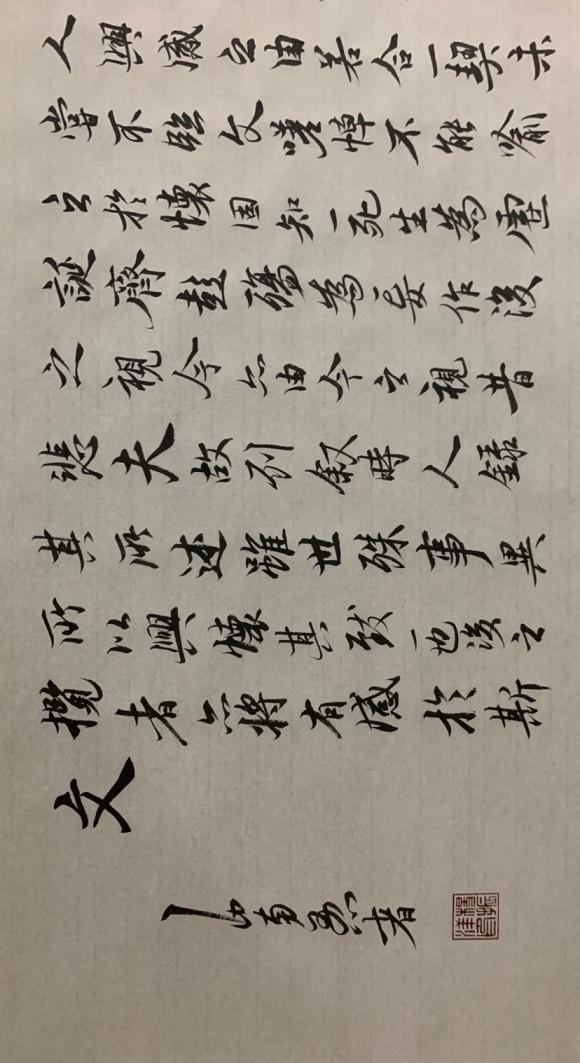 人興感之由若合一契未
嘗不臨文嗟悼不能喻
之於懷固知一死生為虛
誕齊彭殤為妄作後
之視今亦由今之視昔
悲夫故列叙時人錄
其所述雖世殊事異
所以興懷其致一也後之
攬者亦將有感於斯
文